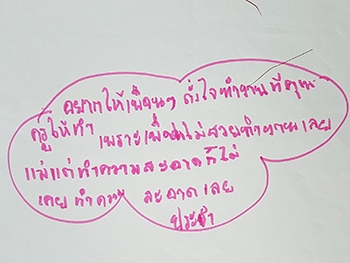 อยากให้เพื่อนๆ ตั้งใจทำงานที่คุณ
ครูให้ทำ เพราะเพื่อนไม่สวยทำงานเลย
แม้แต่ทำความสะอาดก็ไม่
เคยทำความ สะอาดเลย
ประจำ